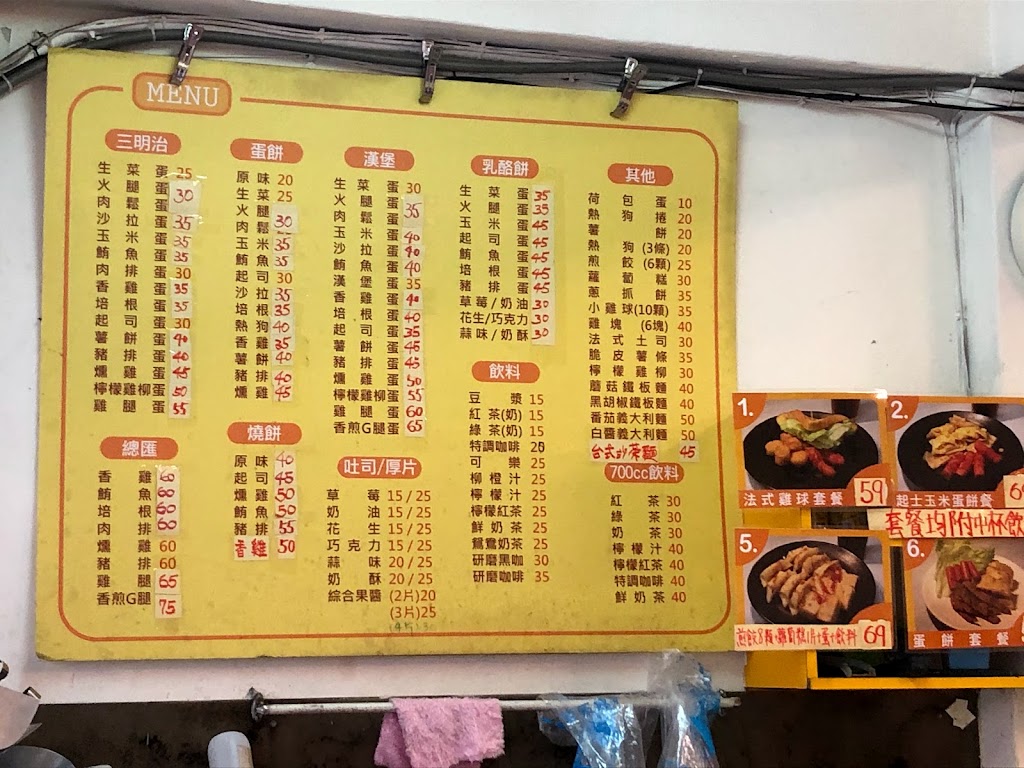 MENU
三明治
生菜蛋 25
火腿蛋 30
肉鬆蛋
沙拉蛋 35
玉米蛋 35
鮪魚蛋 35
肉排蛋 30
香雞蛋 35
培根蛋 35
起司蛋 30
薯餅蛋 40
豬排蛋 40
燻雞蛋 45
檸檬雞柳蛋 50
雞腿蛋 55
總匯
香雞 60
鮪魚 60
培根 60
肉排 60
燻雞 60
豬排 60
雞腿 65
香煎G腿 75
蛋餅
原味 20
生菜 25
火腿 30
肉鬆
玉米 35
鮪魚 35
起司 30
沙拉 35
培根 35
熱狗 40
香雞 35
薯餅 40
豬排 40
燻雞 45
燒餅
原味 40
起司 45
燻雞 50
鮪魚 50
豬排 55
香雞 50
漢堡
生菜蛋 30
火腿蛋 35
肉鬆蛋
玉米蛋 40
沙拉蛋 40
鮪魚蛋 40
漢堡蛋 35
香雞蛋 40
培根蛋 40
起司蛋 35
薯餅蛋 45
豬排蛋 45
燻雞蛋 50
檸檬雞柳蛋 55
雞腿蛋 60
香煎G腿蛋 65
吐司/厚片
草莓 15/25
奶油 15/25
花生 15/25
巧克力 15/25
蒜味 20/25
奶酥 20/25
綜合果醬 (2片)20
(3片)25
乳酪餅
生菜蛋 35
火腿蛋 35
玉米蛋 45
起司蛋 45
鮪魚蛋 45
培根蛋 45
豬排蛋 45
草莓/奶油 30
花生/巧克力 30
蒜味/奶酥 30
飲料
豆漿 15
紅茶(奶) 15
綠茶(奶) 15
特調咖啡 20
可樂 25
柳橙汁 25
檸檬汁 25
檸檬紅茶 25
鮮奶茶 25
鴛鴦奶茶 25
研磨黑咖 30
研磨咖啡 35
其他
荷包蛋 10
熱狗捲 20
薯餅 20
熱狗(3條) 20
煎餃(6顆) 25
蘿蔔糕 30
蔥抓餅 35
小雞球(10顆) 35
雞塊(6塊) 40
法式土司 30
脆皮薯條 35
檸檬雞柳 30
蘑菇鐵板麵 40
黑胡椒鐵板麵 40
番茄義大利麵 50
白醬義大利麵 50
台式炒蔴麵 45
700cc飲料
紅茶 30
綠茶 30
奶茶 30
檸檬汁 40
檸檬紅茶 40
特調咖啡 40
鮮奶茶 40
1.
法式雞球套餐 59
2.
起士玉米蛋餅餐
套餐均附中杯飲
5.
69
6.
蛋餅套餐